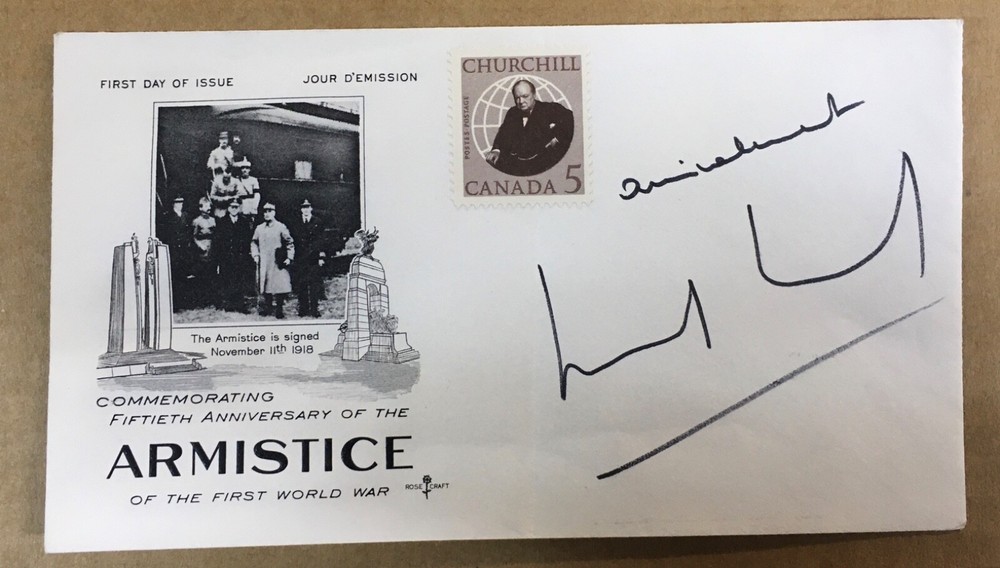 FIRST DAY OF ISSUE
JOUR D'EMISSION
CHURCHILL
POSTES POSTAGE
CANADA 5
The Armistice is signed
November 11th 1918
COMMEMORATING
FIFTIETH ANNIVERSARY OF THE
ARMISTICE
OF THE FIRST WORLD WAR
ROSE CRAFT
amicalement